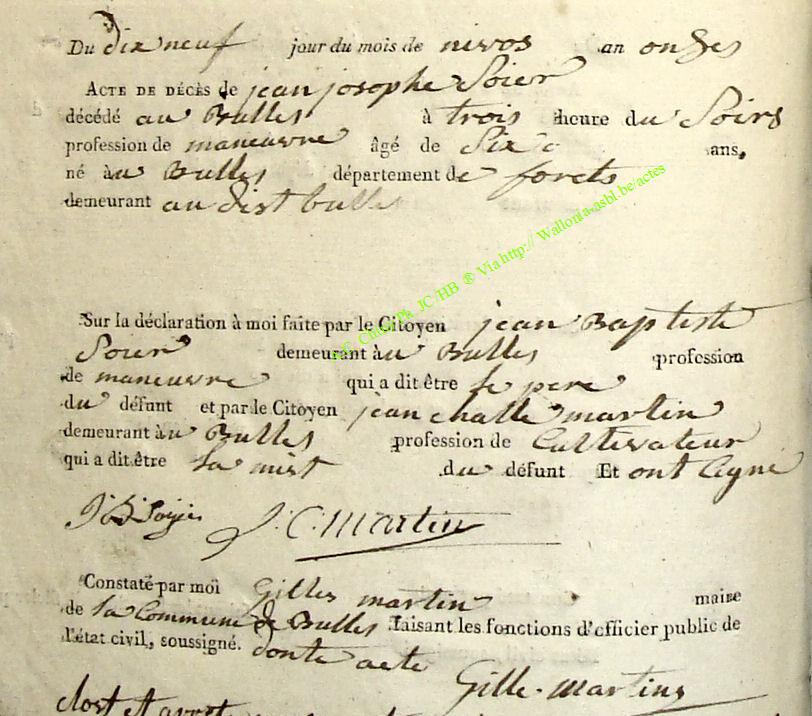 Du dix neuf jour du mois de nivos an onzes
ACTE DE DÉCÈS de jean josophe Soier
décédé au Bulles à trois heure du Soirs
profession de maneuvre âgé de Six ans,
né àu Bulles département de forets
demeurant au dist bulles
Sur la déclaration à moi faite par le Citoyen jean Baptiste
Soier demeurant àu Bulles profession
de maneuvre qui a dit être le pere
du défunt et par le Citoyen jean challe martin
demeurant àu Bulles profession de Cultivateur
qui a dit être du défunt Et ont Cigné
J. C. Martin
Constaté par moi Gilles martin maire
de la Commune de Bulles faisant les fonctions d'officier public de
l'état civil, soussigné. donte acte
Gille. Martins
clost et
A.G. JC/HB ® Via http:// Wallonia-asbl.be/actes